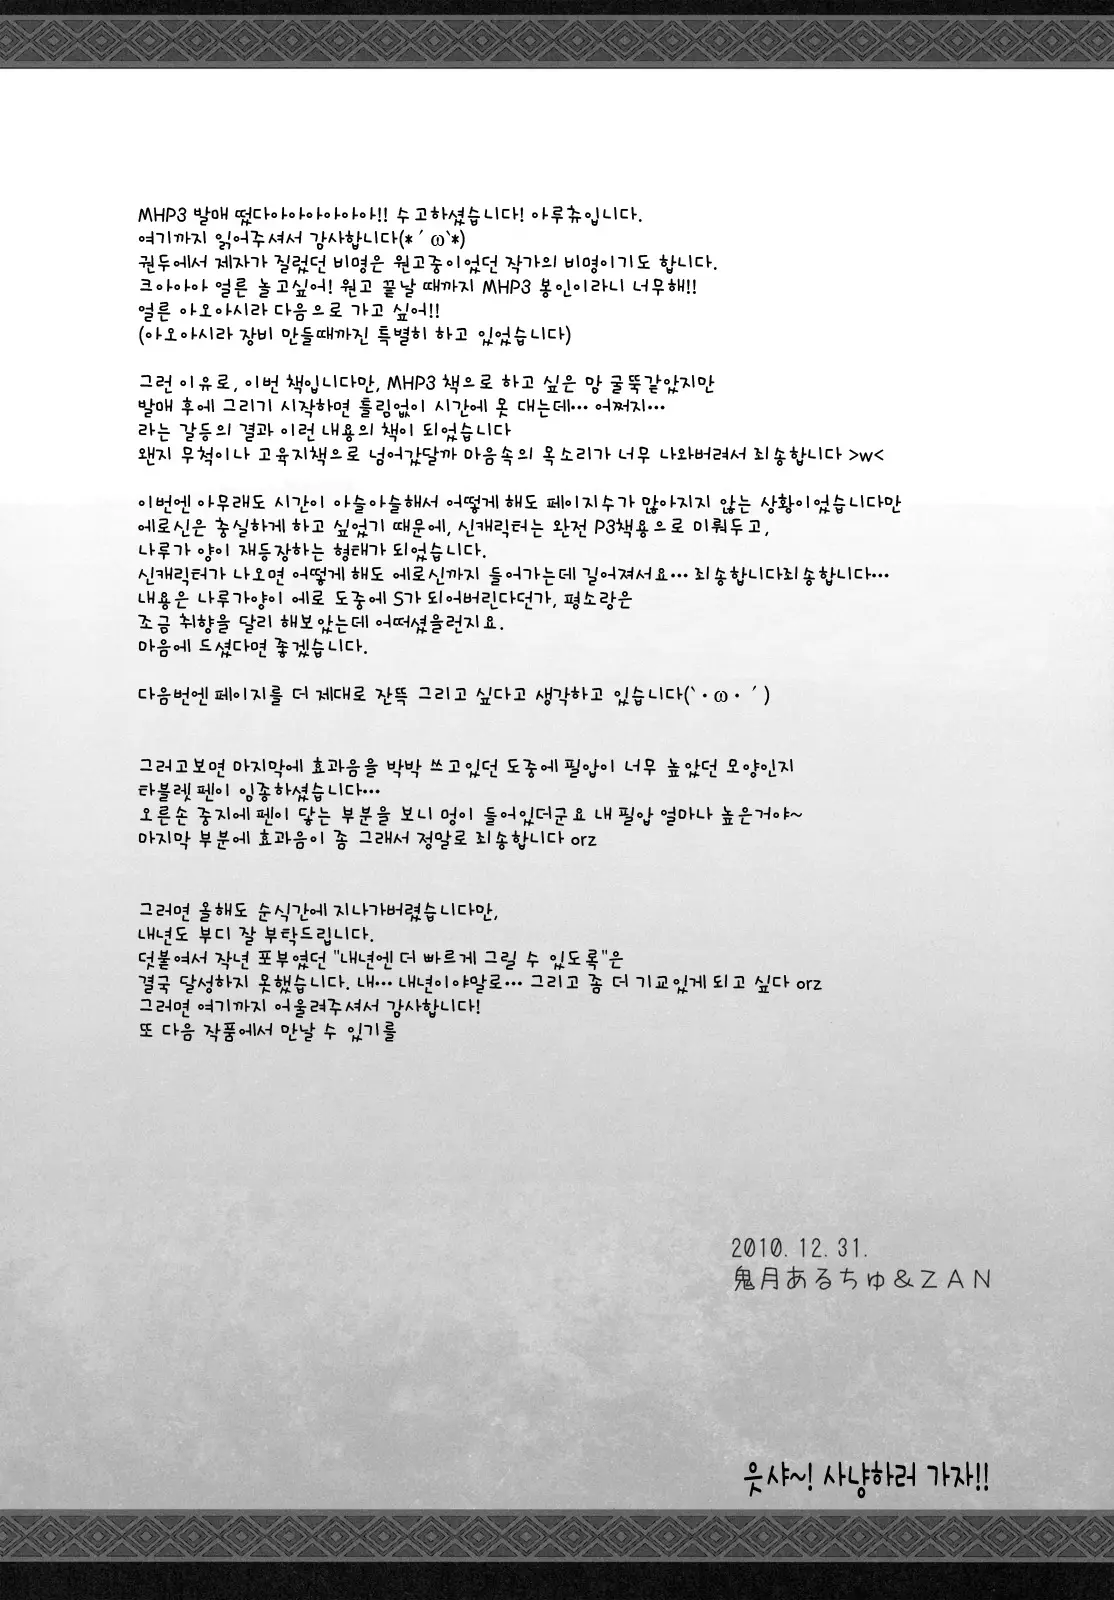 MHP3 발매 떴다아아아아아아!! 수고하셨습니다! 아루츄입니다.
여기까지 읽어주셔서 감사합니다(*´ω`*)
권두에서 제자가 질렀던 비명은 원고중이었던 작가의 비명이기도 합니다.
크아아아 얼른 놀고싶어! 원고 끝날 때까지 MHP3 봉인이라니 너무해!!
얼른 아오아시라 다음으로 가고 싶어!!
(아오아시라 장비 만들때까진 특별히 하고 있었습니다)
그런 이유로, 이번 책입니다만, MHP3 책으로 하고 싶은 맘 굴뚝같았지만
발매 후에 그리기 시작하면 틀림없이 시간에 못 대는데… 어쩌지…
라는 갈등의 결과 이런 내용의 책이 되었습니다
왠지 무척이나 고육지책으로 넘어갔달까 마음속의 목소리가 너무 나와버려서 죄송합니다 >w<
이번엔 아무래도 시간이 아슬아슬해서 어떻게 해도 페이지수가 많아지지 않는 상황이었습니다만
에로신은 충실하게 하고 싶었기 때문에, 신캐릭터는 완전 P3책용으로 미뤄두고,
나루가 양이 재등장하는 형태가 되었습니다.
신캐릭터가 나오면 어떻게 해도 에로신까지 들어가는데 길어져서요… 죄송합니다죄송합니다…
내용은 나루가양이 에로 도중에 S가 되어버린다던가, 평소랑은
조금 취향을 달리 해보았는데 어떠셨을런지요.
마음에 드셨다면 좋겠습니다.
다음번엔 페이지를 더 제대로 잔뜩 그리고 싶다고 생각하고 있습니다(`・ω・´)
그러고보면 마지막에 효과음을 박박 쓰고있던 도중에 필압이 너무 높았던 모양인지
타블렛 펜이 임종하셨습니다…
오른손 중지에 펜이 닿는 부분을 보니 멍이 들어있더군요 내 필압 얼마나 높은거야~
마지막 부분에 효과음이 좀 그래서 정말로 죄송합니다 orz
그러면 올해도 순식간에 지나가버렸습니다만,
내년도 부디 잘 부탁드립니다.
덧붙여서 작년 포부였던 "내년엔 더 빠르게 그릴 수 있도록"은
결국 달성하지 못했습니다. 내… 내년이야말로… 그리고 좀 더 기교있게 되고 싶다 orz
그러면 여기까지 어울려주셔서 감사합니다!
또 다음 작품에서 만날 수 있기를
2010.12.31.
鬼月あるちゅ＆ＺＡＮ
읏샤~! 사냥하러 가자!!